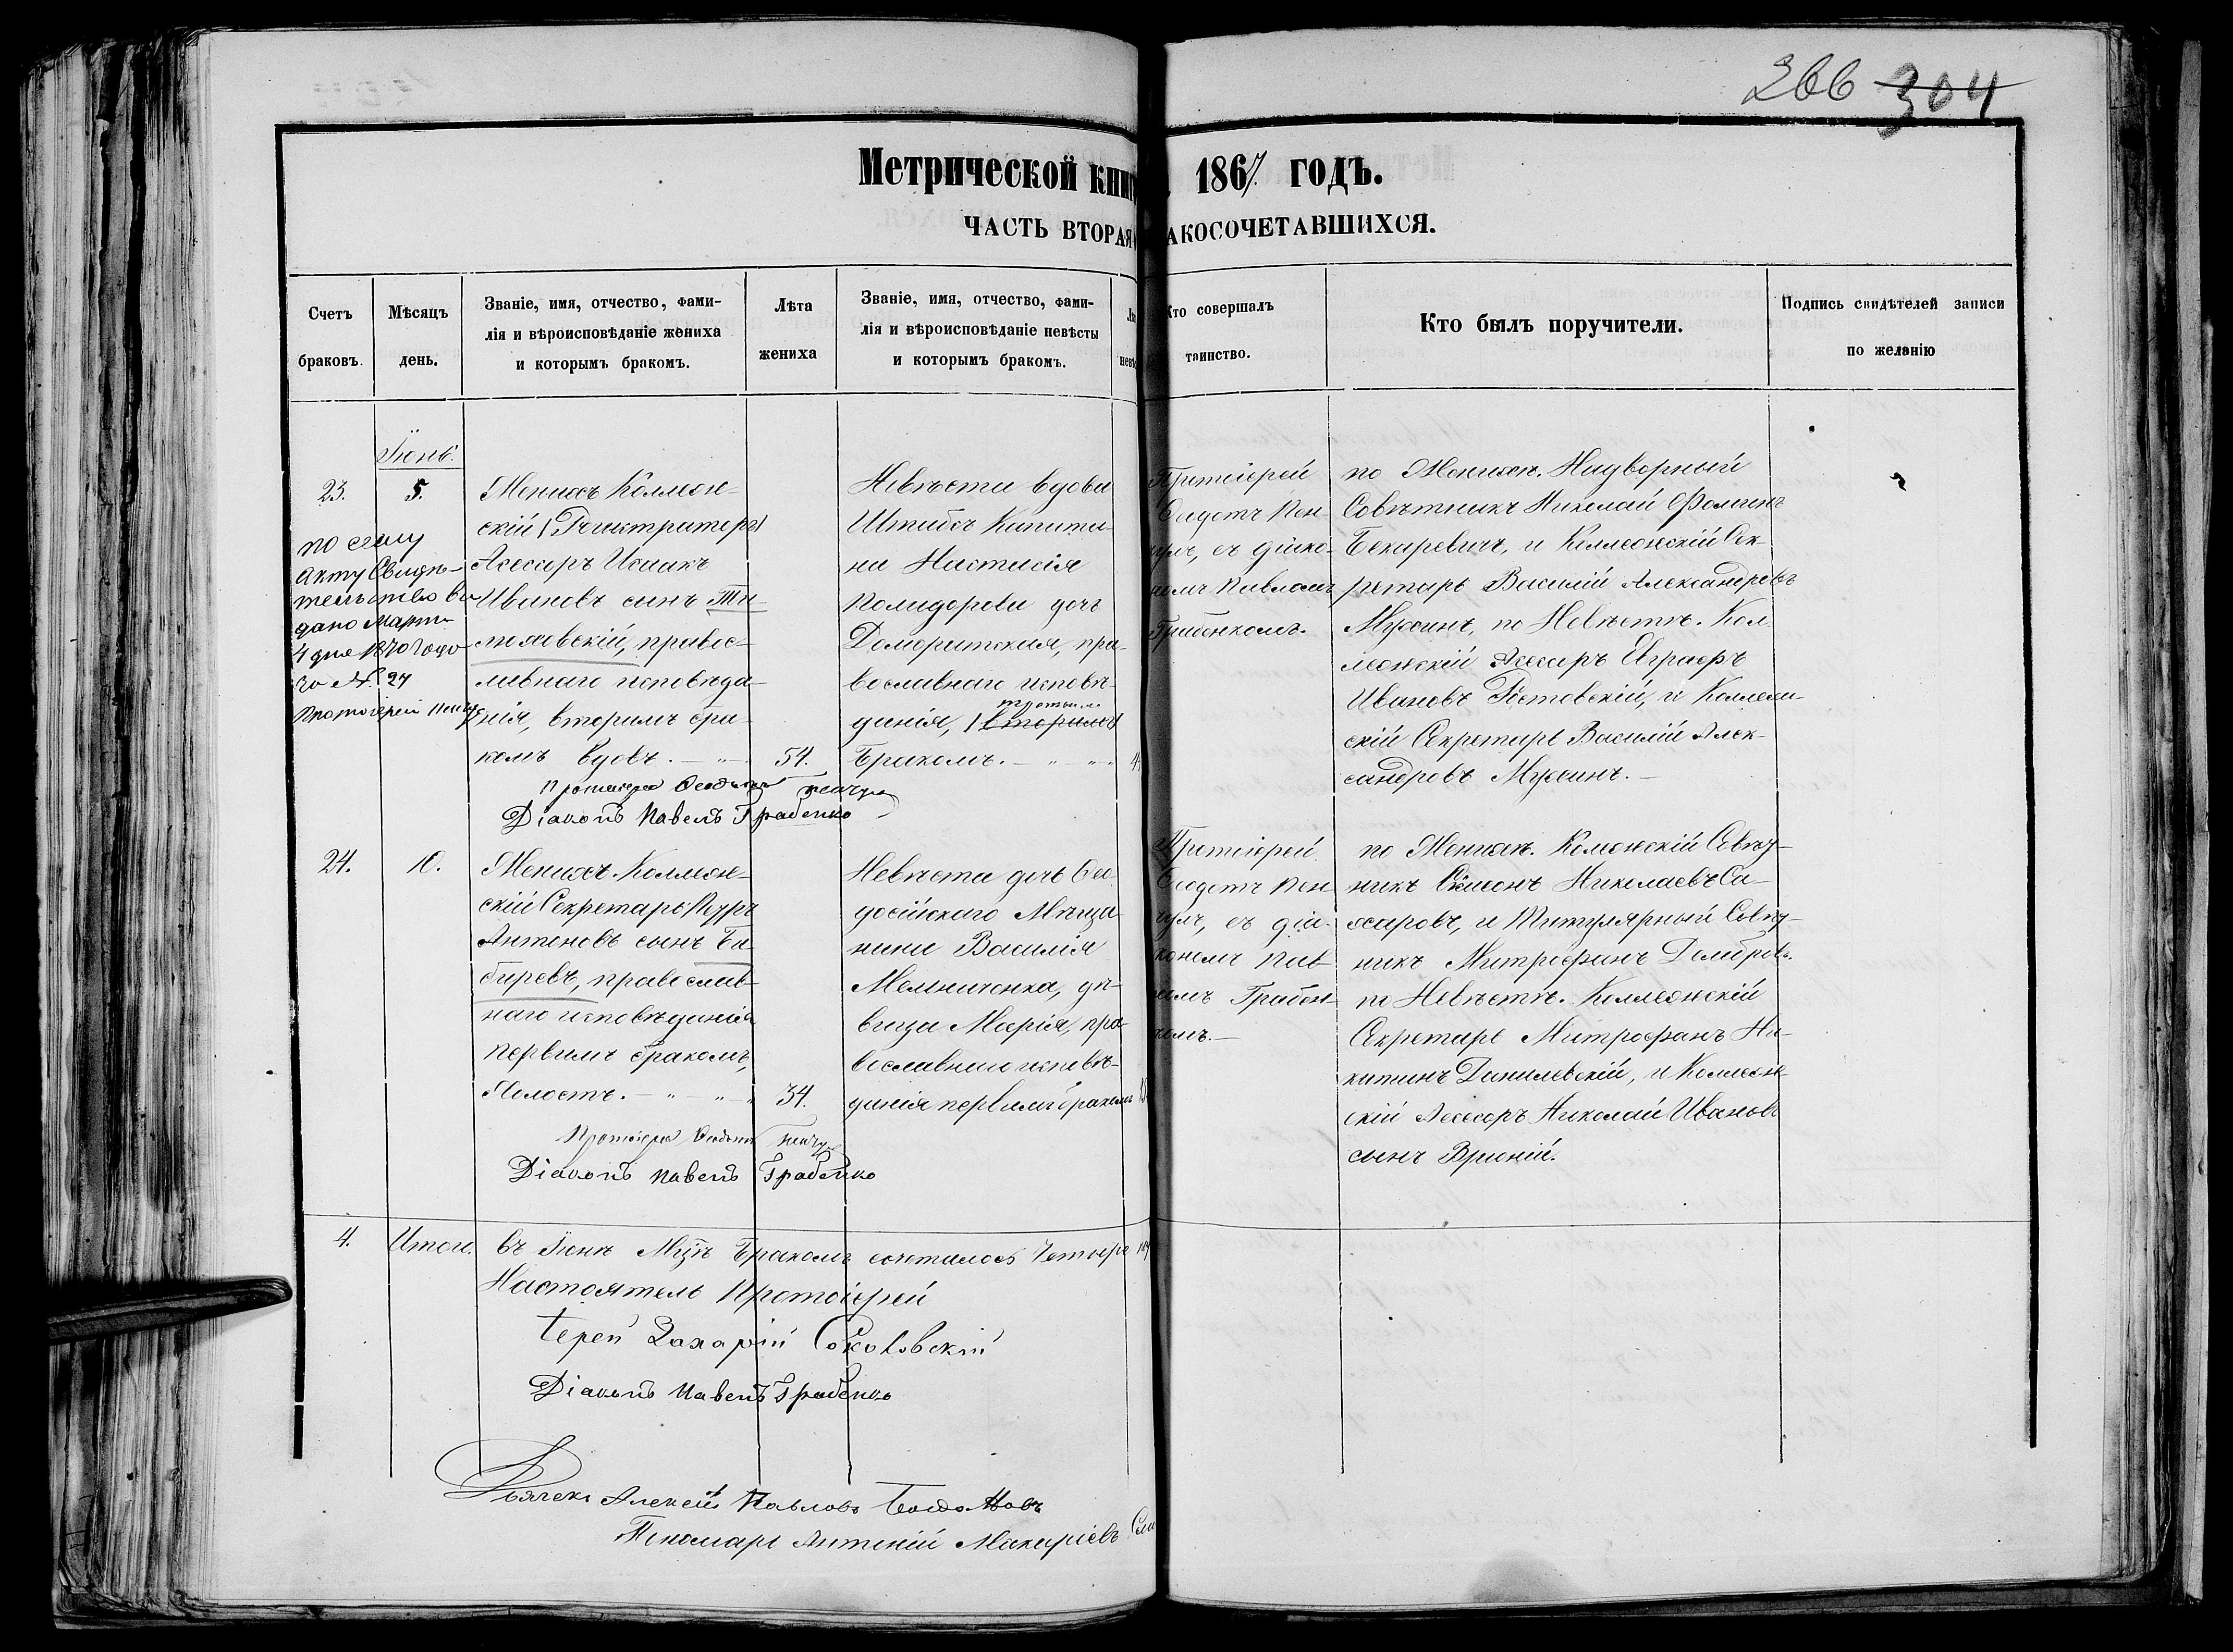 266 304
Метрической книг 1867 годъ.
ЧАСТЬ ВТОРАЯ АКОСОЧЕТАВШИХСЯ.
Счетъ
браковъ.
Мѣсяцъ
день.
Званіе, имя, отчество, фами-
лія и вѣроисповѣданіе жениха
и которымъ бракомъ.
Лѣта
жениха
Званіе, имя, отчество, фами-
лія и вѣроисповѣданіе невѣсты
и которымъ бракомъ.
Кто совершалъ
таинство.
Кто былъ поручители.
Подпись свидѣтелей записи
по желанію
Іюнь.
23.
5.
по сему
Акту Свидѣ-
тельство вы
дано Марта
4 дня 1870 года
за № 27
Протоіерей
Женихъ Коллеж-
скій (Регистраторъ)
Асесоръ Исаакъ
Ивановъ сынъ
правос-
лавнаго исповѣда-
нія, вторымъ бра-
комъ вдовъ.
54.
Невѣста вдова
Штабсъ Капита-
на Настасія
Полидорова дочь
пра-
вославнаго исповѣ-
третьимъ
данія, (вторымъ)
Бракомъ.
Протоіерей
Діаконъ Павелъ Грабенко
Протоіерей
Ѳеодотъ Пен-
чулъ, съ діяко-
номъ Павломъ
Грабенкомъ.
по Женихѣ. Надворный
Совѣтникъ Николай Ѳоминъ
Бекаревичъ, и Коллежскій Сек-
ретарь Василій Александровъ
Мухинъ, по Невѣстѣ. Кол-
лежскій Асесоръ Евграфъ
Ивановъ Ростовскій, и Коллеж-
скій Секретарь Василій Алек-
сандровъ Мухинъ.
24.
10.
Женихъ Коллеж-
скій Секретарь
Антоновъ сынъ Ба-
быревъ, православ-
наго исповѣданія
первымъ бракомъ,
Холостъ.
34.
Невѣста дочь Ѳео-
досійскаго Мѣща-
нина Василія
Мельниченка, дѣ-
вица Марія, пра-
вославнаго исповѣ-
данія первымъ бракомъ
Протоіерей
Діаконъ Павелъ Грабенко
Протоіерей
Ѳеодотъ Пен-
чулъ, съ діа-
кономъ Пав-
ломъ Грабен-
комъ.
по Женихѣ. Колежскій Совѣт-
никъ Симеонъ Николаевъ Са-
харовъ, и Титулярный Совѣт-
никъ Митрофанъ
по Невѣстѣ. Коллежскій
Секретарь Митрофанъ Ни-
китинъ Данилевскій, и Коллеж-
скій Асесоръ Николай Ивановъ
сынъ
4.
Итого. въ Іюнѣ М-цѣ Бракомъ сочеталось Четыре
Настоятель Протоіерей
Іерей Захарій Соколовскій
Діаконъ Павелъ Грабенко
Дьячекъ Алексей Павловъ
Пономарь Антоній Макаріевъ